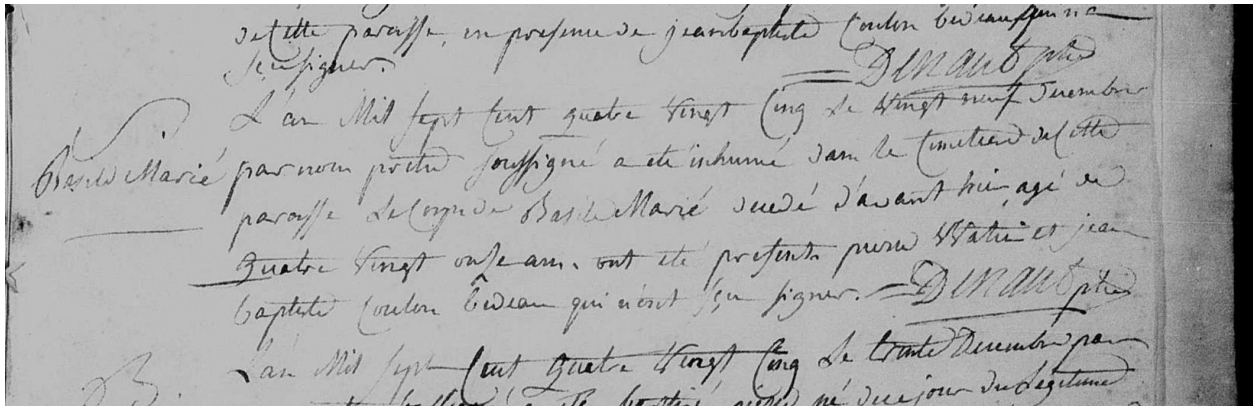 de Cette paroisse, en presence de jean baptiste Coulon bedeau qui n'a
sçeu signer. DENAUT ptre
L'an Mil sept Cent quatre Vingt Cinq Le Vingt neuf Decembre
Basile Marié par nous prètre soussigné a eté inhumé dans le Cimetiere de Cette
paroisse Le Corps de Basile Marié decedé d'avant hier, agé de
quatre Vingt onse ans. ont eté presents pierre et jean
baptiste Coulon bedeau qui n'ont sçeu signer. DENAUT ptre
L'an Mil sept Cent quatre Vingt Cinq Le trente Decembre par
né de ce jour du Légitime